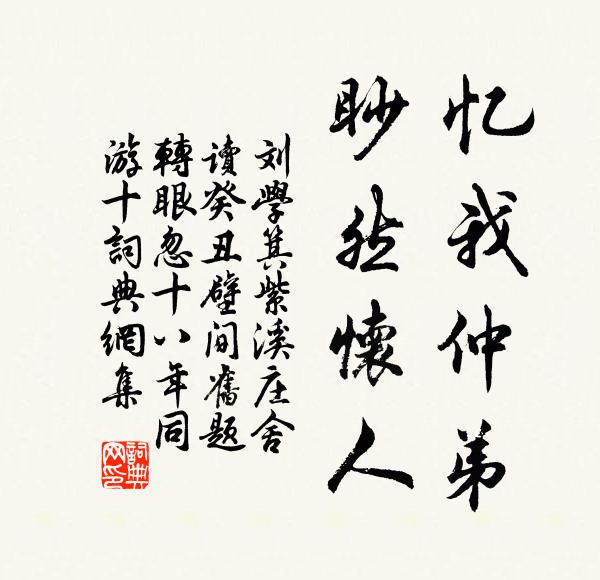 忆我仲弟
眇然懷人
刘學箕紫溪庄舍
讀癸丑壁间舊题
轉眼忽十八年同
游十詞典網集
詞典
网印